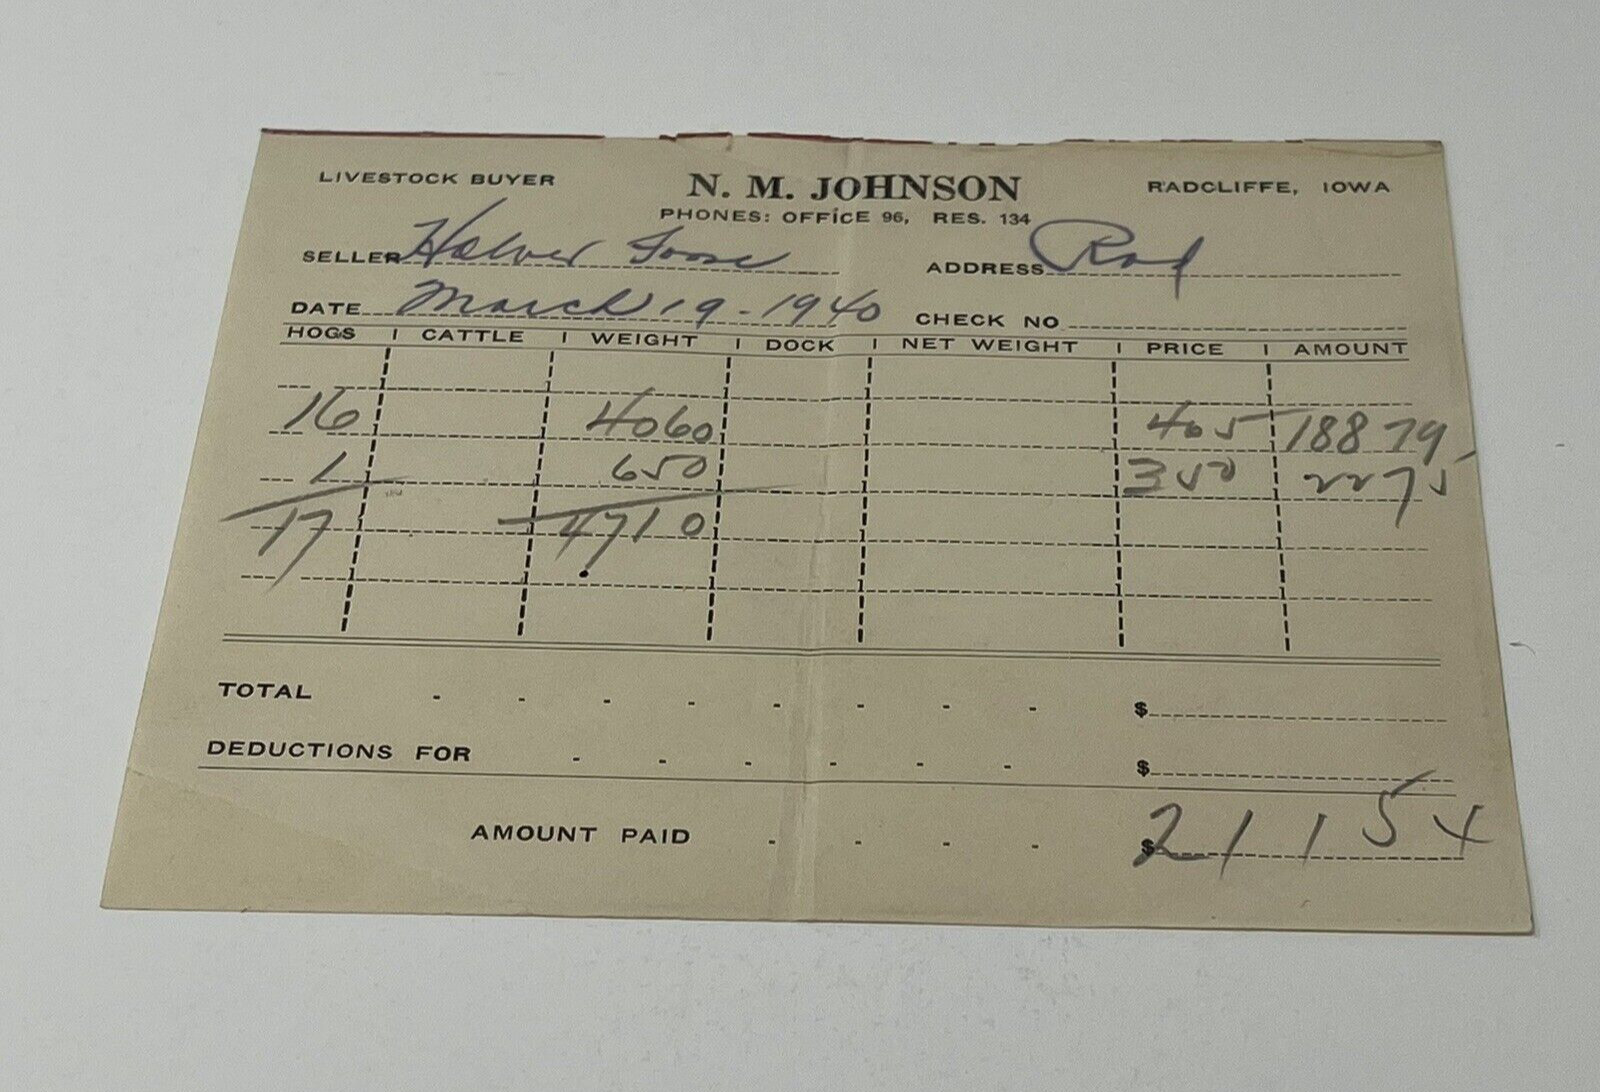 LIVESTOCK BUYER N. M. JOHNSON RADCLIFFE, IOWA
PHONES: OFFICE 96, RES. 134
SELLER Halver ADDRESS Rad
DATE March 19 - 1940 CHECK NO
HOGS | CATTLE | WEIGHT | DOCK | NET WEIGHT | PRICE | AMOUNT
16 4060 465 188 79
1 650 350 22 75
17 4710
TOTAL - - - - - - - - $
DEDUCTIONS FOR - - - - - - $
AMOUNT PAID - - - - $ 211 54